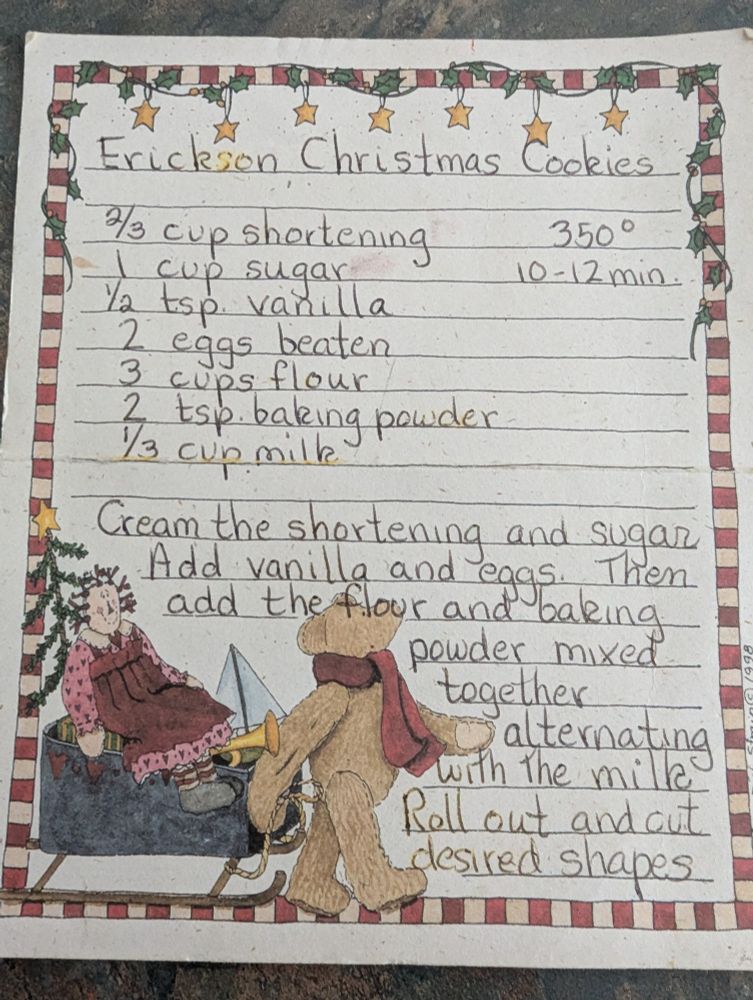 Erickson Christmas Cookies
2/3 cup shortening 350°
1 cup sugar 10-12 min.
1/2 tsp. vanilla
2 eggs beaten
3 cups flour
2 tsp. baking powder
1/3 cup milk
Cream the shortening and sugar
Add vanilla and eggs. Then
add the flour and baking
powder mixed
together
alternating
with the milk
Roll out and cut
desired shapes
©1998